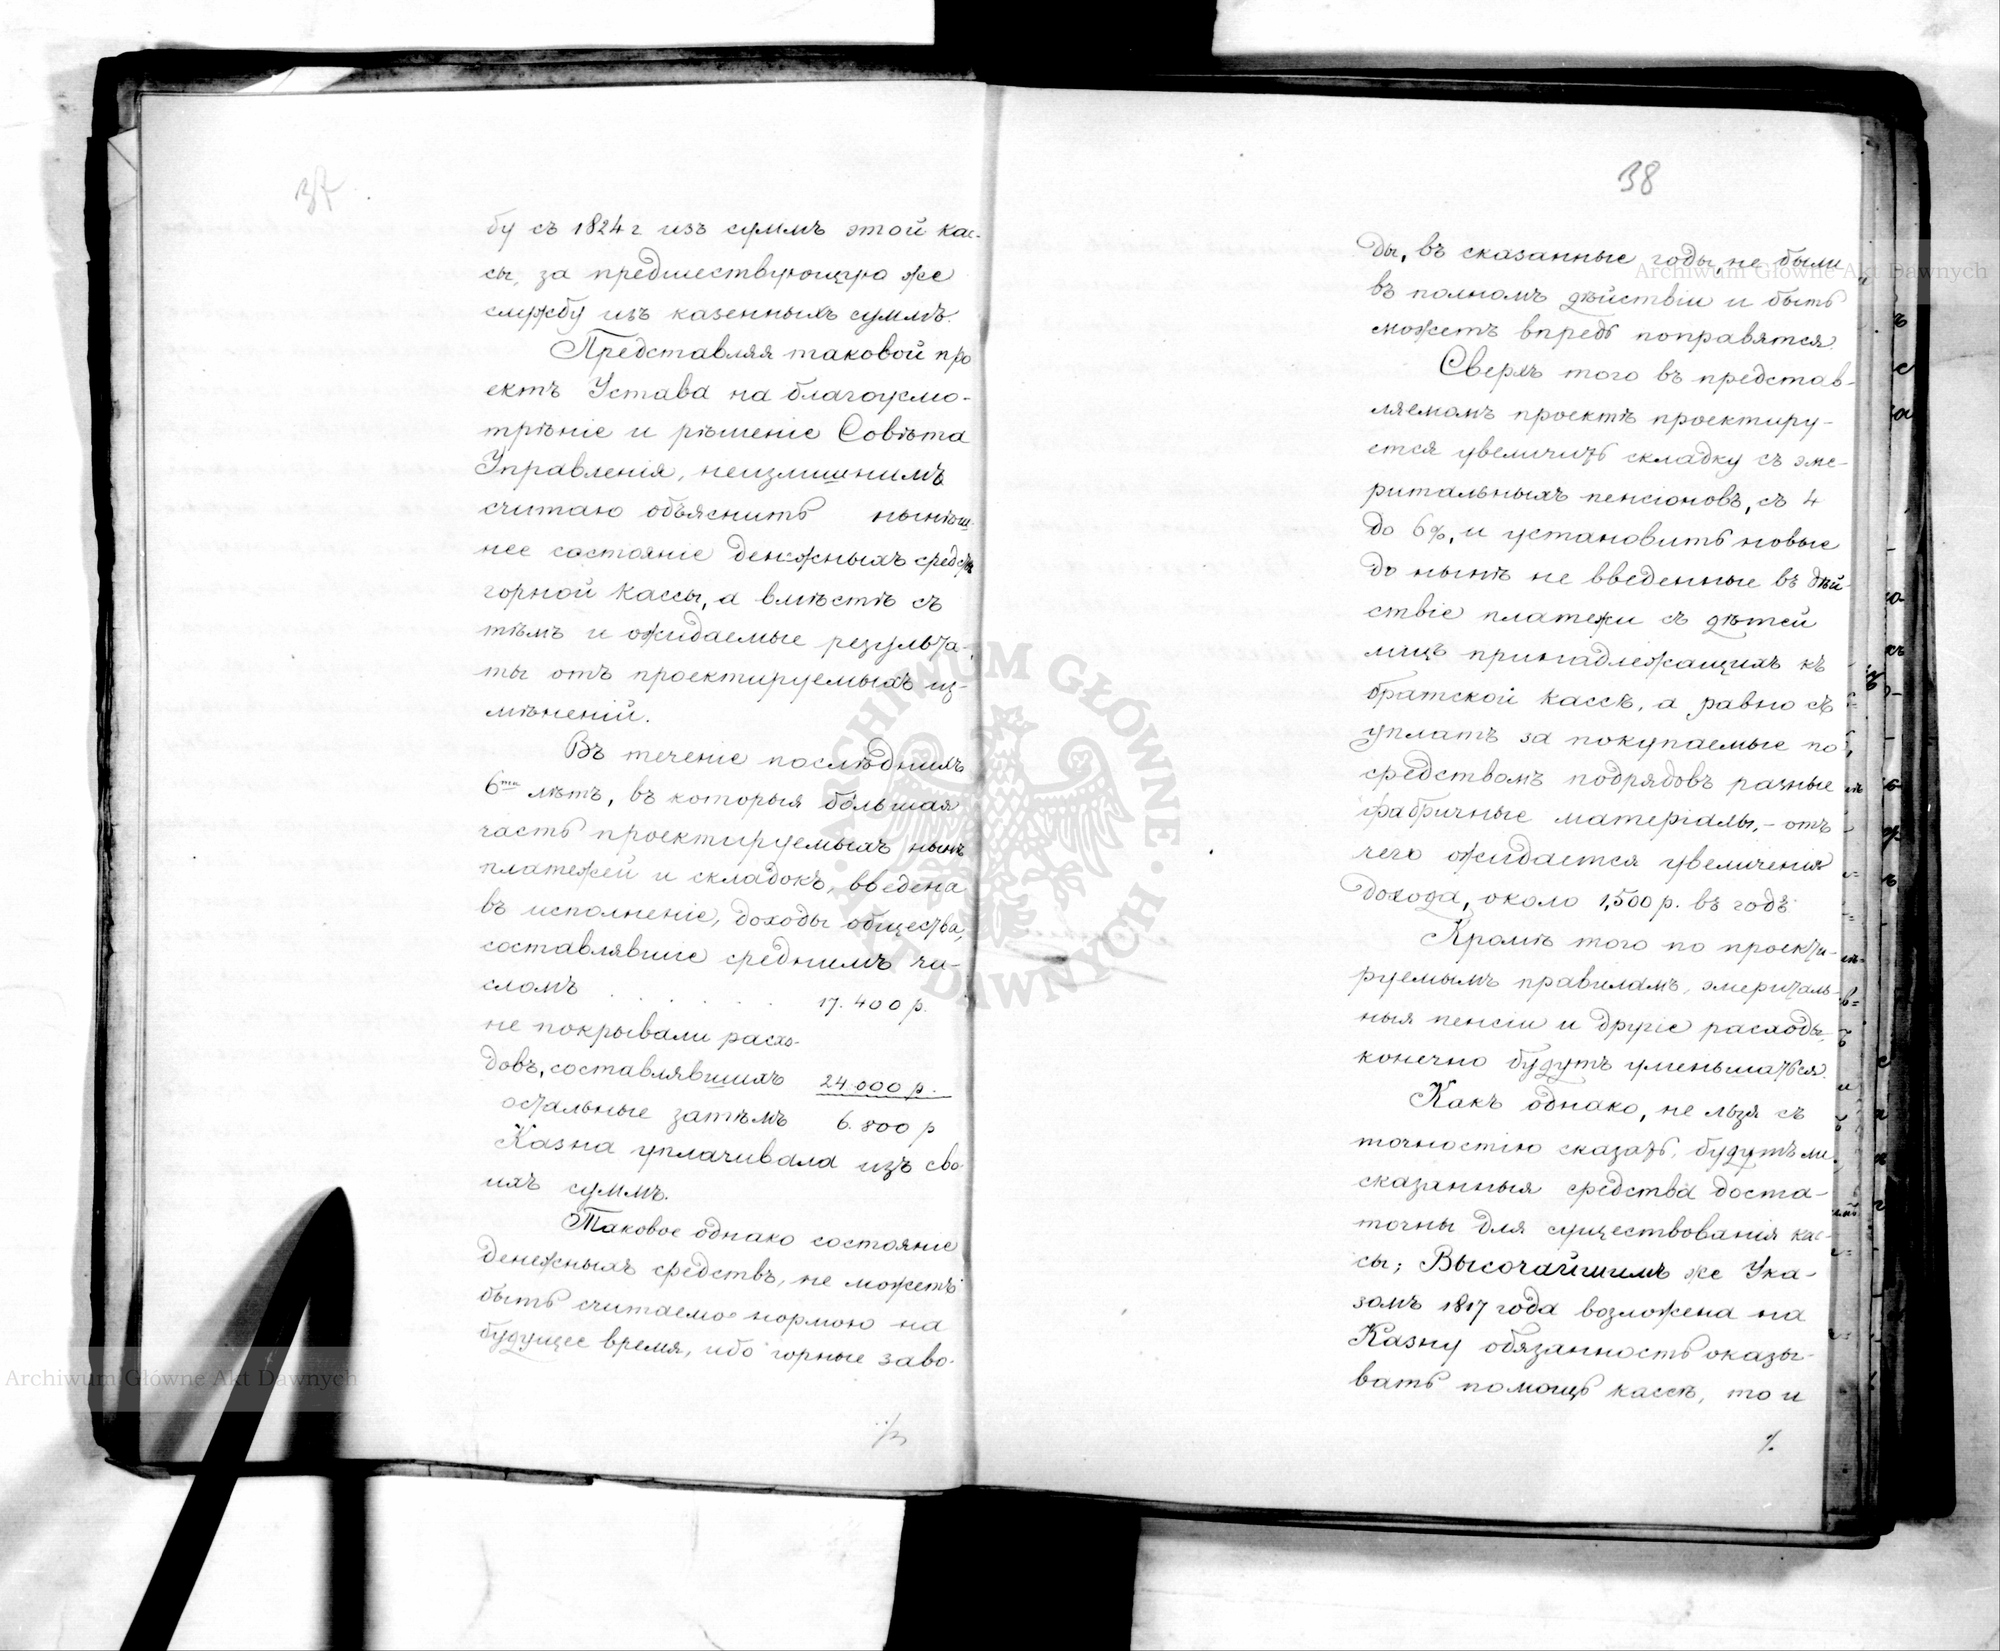 37
бу съ 1824 г изъ суммъ этой кас-
сы, за предшествующую же
службу изъ казенныхъ суммъ.
Представляя таковой про
ектъ Устава на благоусмо-
трѣніе и рѣшеніе Совѣта
Управленія, неизлишнимъ
считаю объяснить нынѣш-
нее состояніе денежныхъ средствъ
горной кассы, а вмѣстѣ съ
тѣмъ и ожидаемые результа-
ты отъ проектируемыхъ из-
мѣненій.
Въ теченіе послѣднихъ
6ти лѣтъ, въ которыя бо́льшая
часть проектируемыхъ нынѣ
платежей и складокъ, введена
въ исполненіе, доходы общества,
составлявшіе среднимъ чи-
сломъ . . . . . . 17.400 р.
не покрывали расхо-
довъ, составлявшихъ 24.000 р.
остальные затѣмъ 6.800 р
Казна уплачивала изъ сво-
ихъ суммъ.
Таковое однако состояніе
денежныхъ средствъ, не можетъ
быть считаемо нормою на
будущее время, ибо горные заво-
38
ды, въ сказанные годы, не были
въ полномъ дѣйствіи и быть
можетъ впредь поправятся.
Сверхъ того въ представ-
ляемомъ проектѣ проектиру-
ется увеличить складку съ эме-
ритальныхъ пенсіоновъ, съ 4
до 6%, и установить новые
до нынѣ не введенные въ дѣй-
ствіе платежи съ дѣтей
лицъ принадлежащихъ къ
братской кассѣ, а равно съ
уплатъ за покупаемые по
средствомъ подрядовъ разные
фабричные матеріалы, - отъ
чего ожидается увеличенія
дохода, около 1,500 р. въ годъ.
Кромѣ того по проекти-
руемымъ правиламъ, эмериталь-
ныя пенсіи и другіе расходы,
конечно будутъ уменьшаться.
Какъ однако, не льзя съ
точностію сказать, будутъ ли
сказанныя средства доста-
точны для существованія кас-
сы; Высочайшимъ же Ука-
зомъ 1817 года возложена на
Казну обязанность оказы-
вать помощь кассѣ, то и
Archiwum Główne Akt Dawnych
Archiwum Główne Akt Dawnych
ARCHIWUM GŁÓWNE AKT DAWNYCH